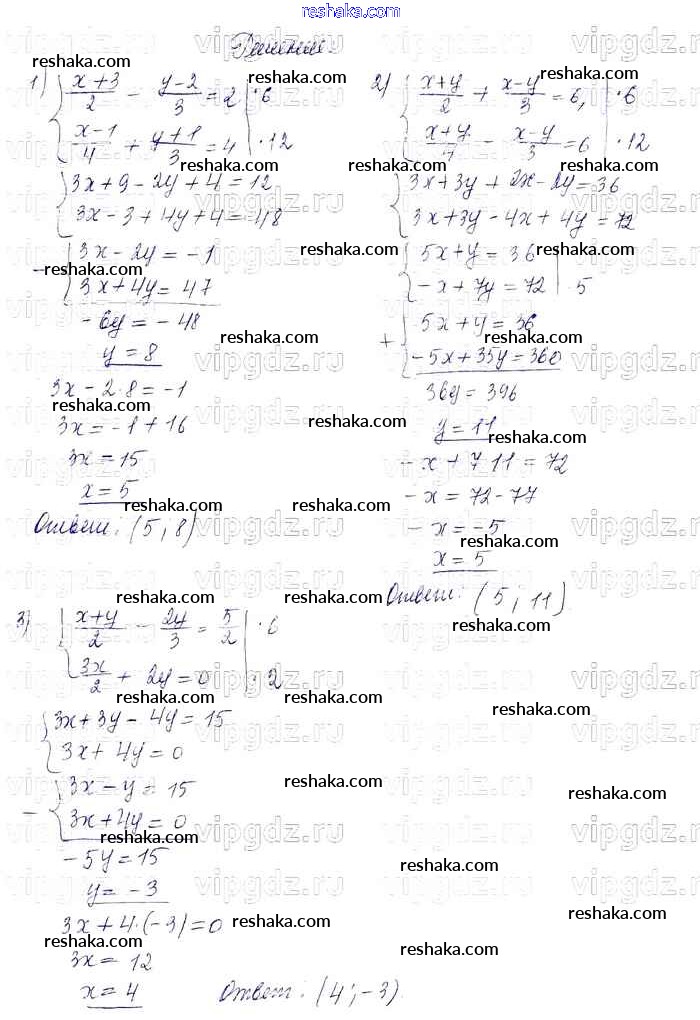 reshaka.com
Решение.
1) { (x+3)/2 - (y-2)/3 = 2 | ·6
(x-1)/4 + (y+1)/3 = 4 | ·12
{ 3x+9-2y+4=12
3x-3+4y+4=48
- { 3x-2y=-1
3x+4y=47
-6y=-48
y=8
3x-2·8=-1
3x=-1+16
3x=15
x=5
Ответ: (5; 8)
2) { (x+y)/2 + (x-y)/3 = 6, | ·6
(x+y)/4 - (x-y)/3 = 6 | ·12
{ 3x+3y+2x-2y=36
3x+3y-4x+4y=72
{ 5x+y=36
-x+7y=72 | 5
+ { 5x+y=36
-5x+35y=360
36y=396
y=11
-x+7·11=72
-x=72-77
-x=-5
x=5
Ответ: (5; 11)
3) { (x+y)/2 - 2y/3 = 5/2 | ·6
3x/2 + 2y=0 | ·2
{ 3x+3y-4y=15
3x+4y=0
- { 3x-y=15
3x+4y=0
-5y=15
y=-3
3x+4·(-3)=0
3x=12
x=4
Ответ: (4; -3)